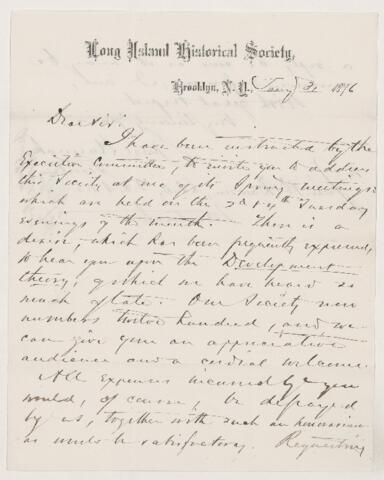 Long Island Historical Society,
Brooklyn, N.Y., Jany 31 1876
Dear Sir:
I have been instructed by the
Executive Committee, to invite you to address
this Society at one of its Spring meetings
which are held on the 2d & 4th Tuesday
evenings of the month. There is a
desire, which has been frequently expressed,
to hear you upon the Development
theory, of which we have heard so
much of late. Our Society now
numbers twelve hundred, and we
can give you an appreciative
audience and a cordial welcome.
All expenses incurred by you
would, of course, be defrayed
by us, together with such an honorarium
as would be satisfactory. Requesting